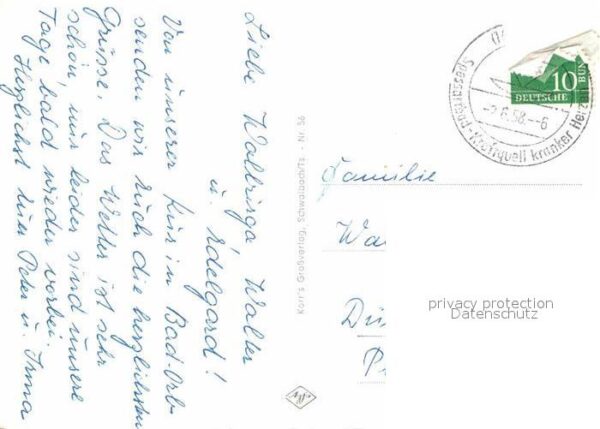 Liebe Walbürga, Walter
u. Edelgard!
Von unserer Kur in Bad-Orb
senden wir Euch die herzlichsten
Grüsse. Das Wetter ist sehr
schön, nur leider sind unsere
Tage bald wieder vorbei.
Herzlichst Euer Peter u. Irma
Korr's Großverlag, Schwalbach/Ts. - Nr. 56
Spessartbad-Kraftquell kranker Herzen
-2.6.58.--6
10
DEUTSCHE
BUN
Familie
Wa
privacy protection
Datenschutz